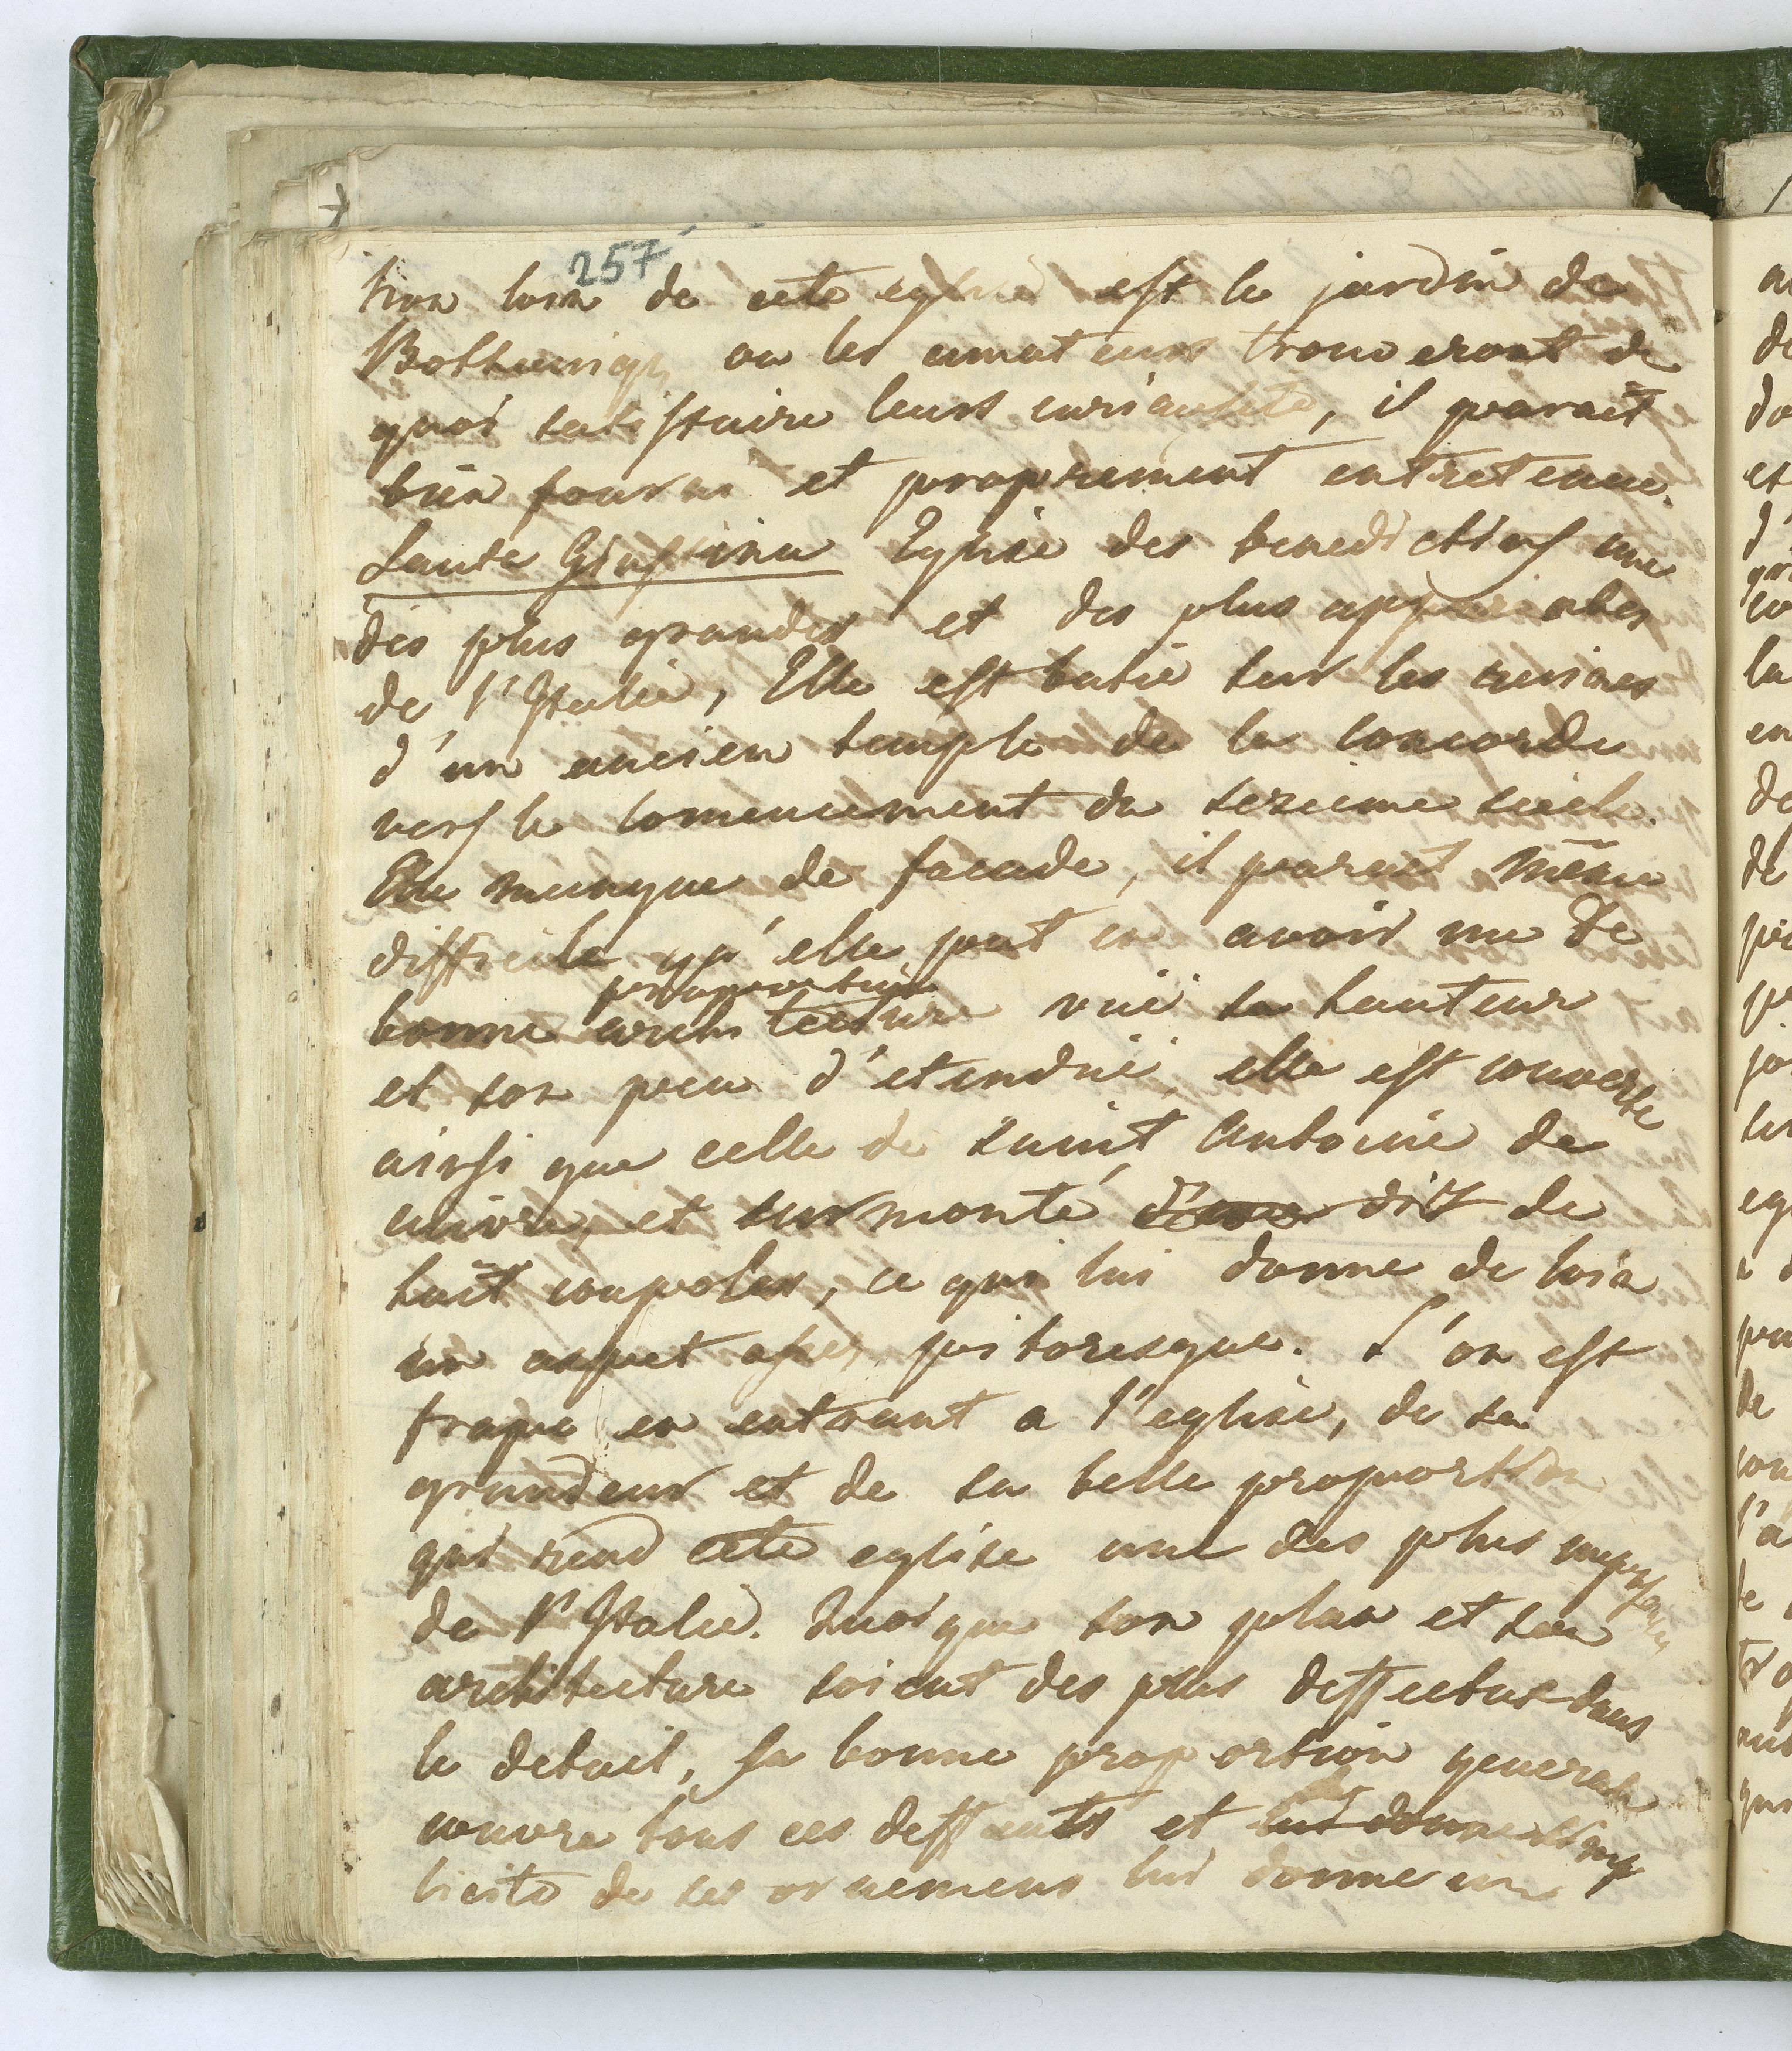 257
non loin de cete eglise est le jardin de
Bottanique ou les amateurs trouveront de
quoi satisfaire leurs curiausité, il parait
bien fourni et proprement entretenue.
Santa Giustina Eglise des benedictins une
des plus grandes et des plus
de l'Italie, Elle est batie sur les ruines
d'un ancien temple de la Concorde
vers le comencement du sezieme siecle.
Elle manque de facade, il parait même
difficile qu'elle peut en avoir une de
proportion
bonne architecture vuë sa hauteur
et son peu d'etenduë, elle est couverte
ainsi que celle de saint Antoine de
cuivre, et surmonté d'une dix de
huit coupoles, ce qui lui donne de loin
un aspect assez pitoresque. L'on est
frapé en entrant a l'eglise, de sa
grandeur et de sa belle proportion
qui rend cete eglise une des plus imposantes
de l'Italie. Quoique son plan et son
architecture soient des plus deffectus dans
le detail, sa bonne proportion generale
couvre tous ces deffauts et lui donne simp
licité de ses ornemens lui donne un